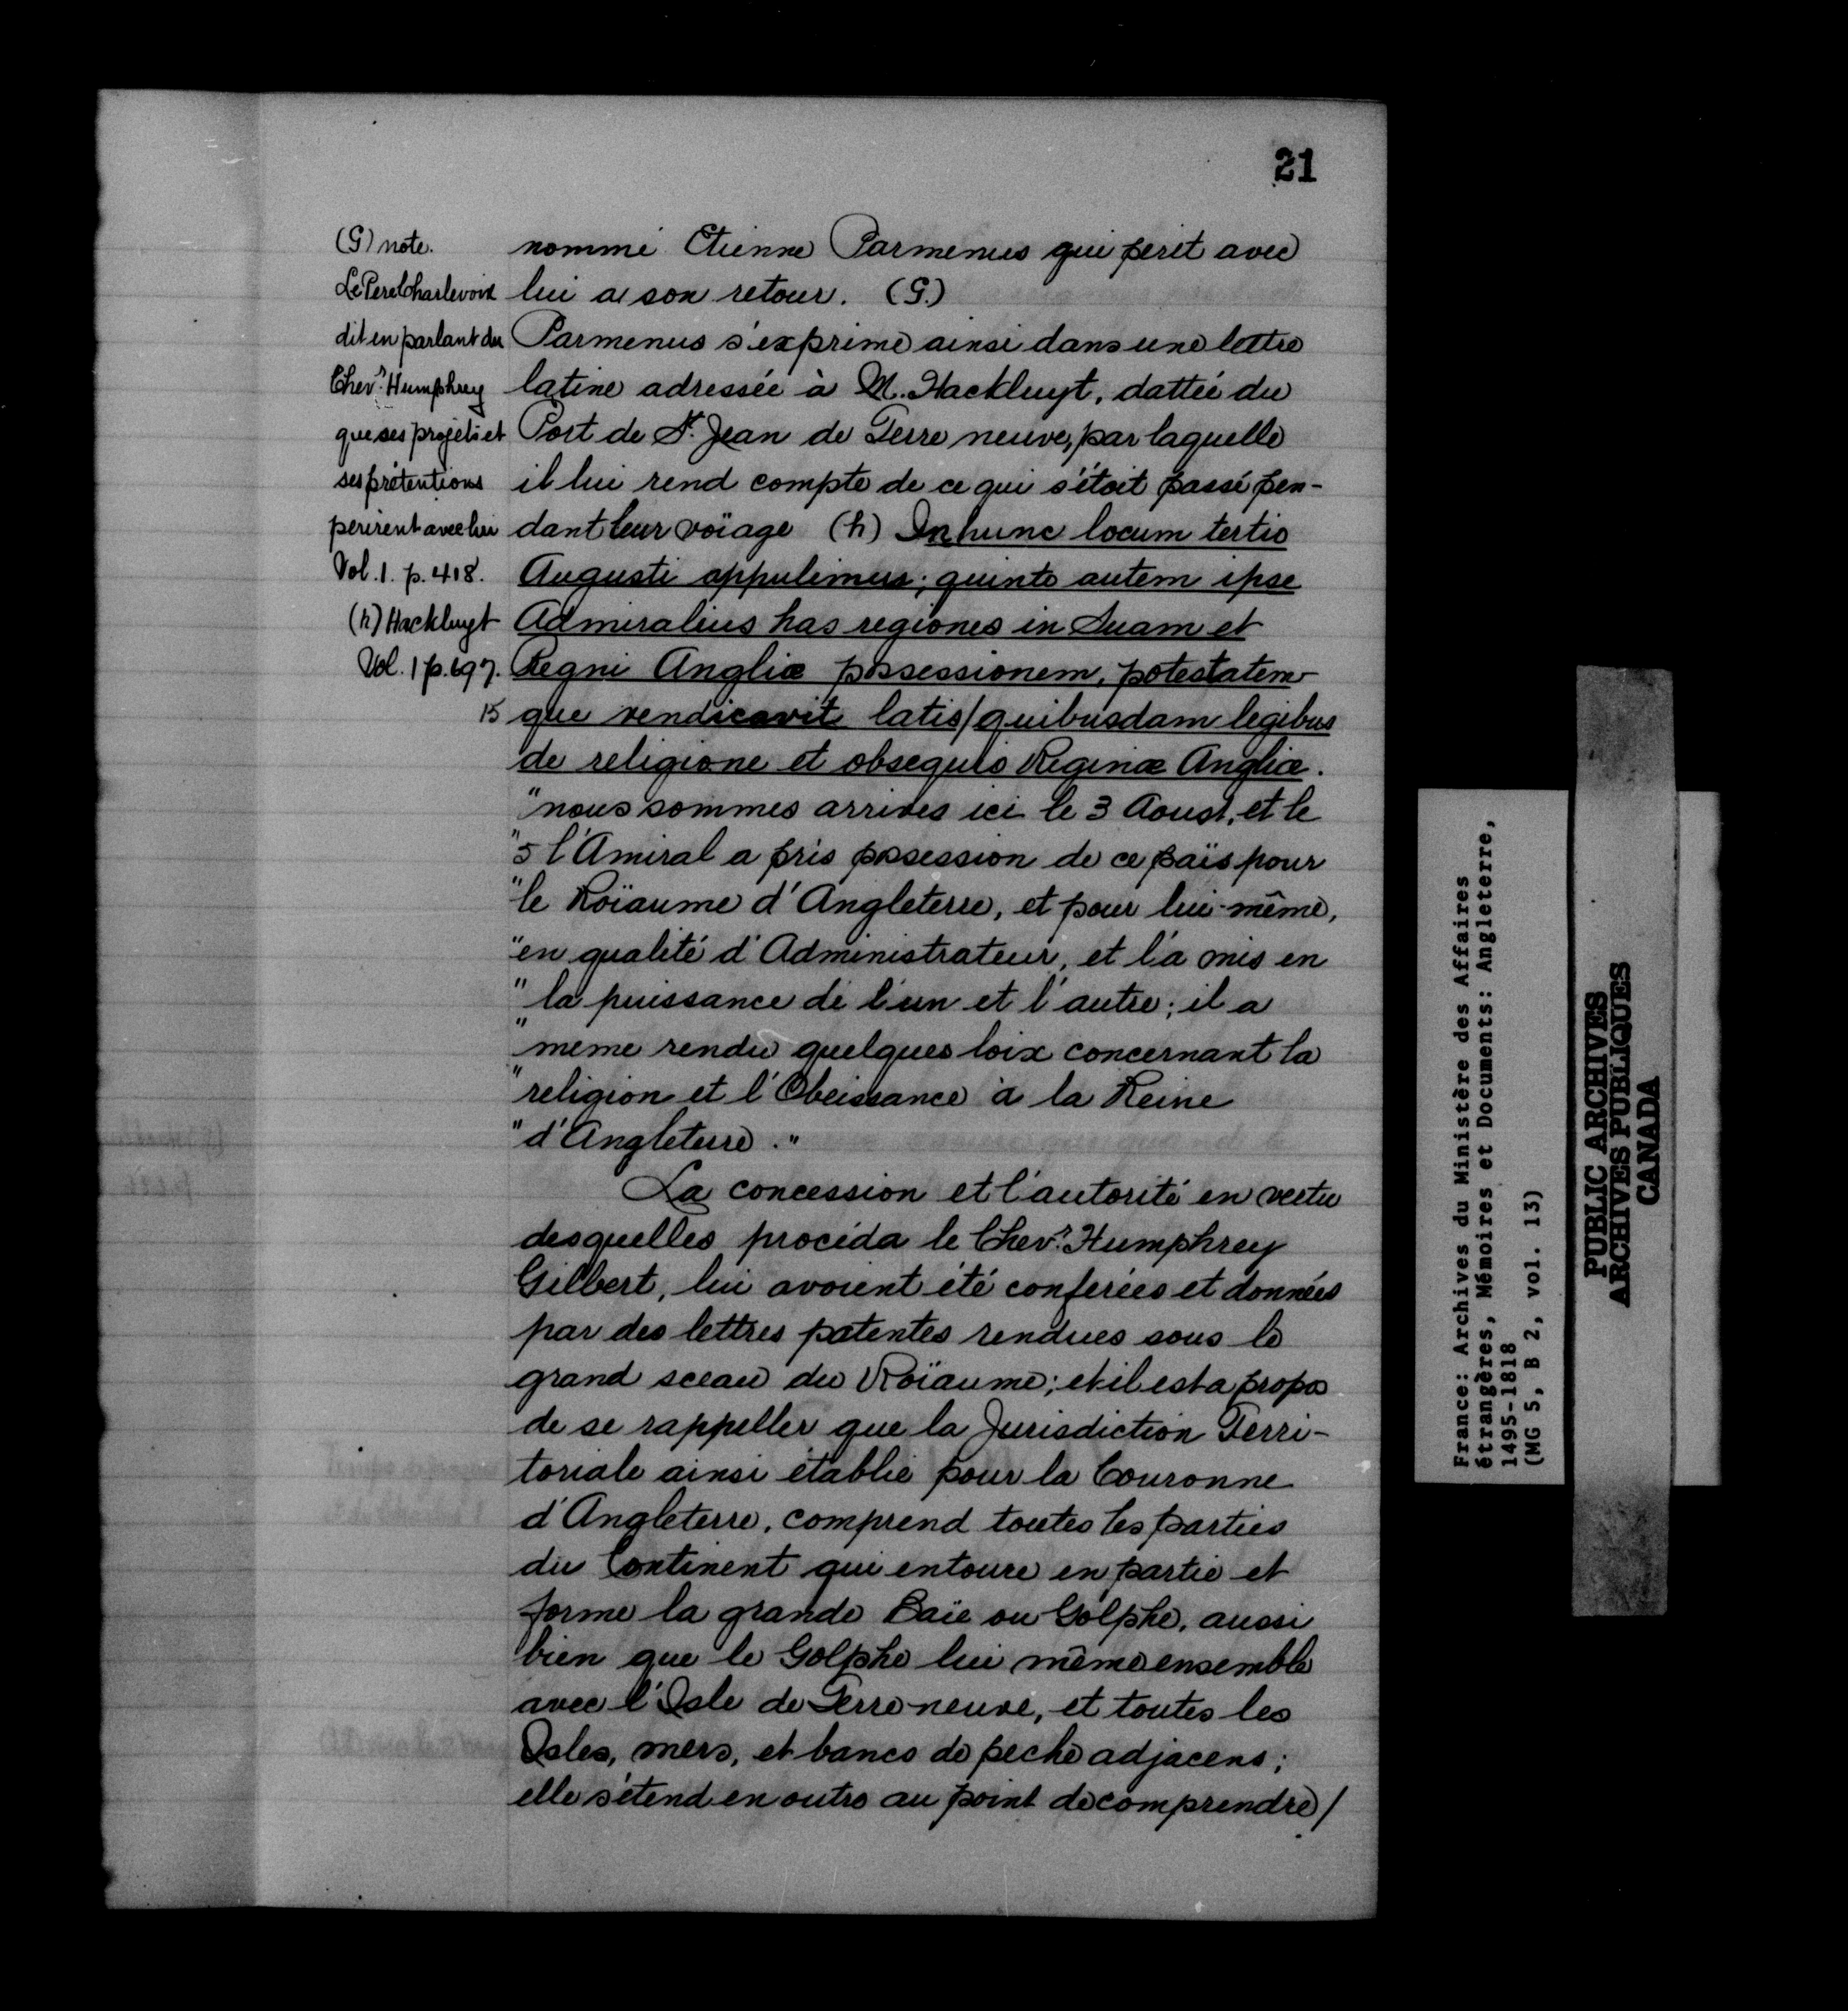 21
(G) note.
Le Pere Charlevoix
dit en parlant du
Chev.r Humphrey
que ses projets et
ses prétentions
perirent avec lui
Vol. 1. p. 418.
(h) Hackluyt
Vol. 1 p. 697.
15
nommé Etienne Parmenus qui perit avec
lui a son retour. (G.)
Parmenus s'exprime ainsi dans une lettre
latine adressée à M. Hackluyt, dattée du
Port de St. Jean de Terre neuve, par laquelle
il lui rend compte de ce qui s'étoit passé pen-
dant leur voïage (h) In hunc locum tertio
Augusti appulimus; quinto autem ipse
Admiralius has regiones in Suam et
Regni Angliæ possessionem, potestatem-
que vendicavit latis/quibusdam legibus
de religione et obsequio Reginæ Angliæ.
"nous sommes arrivés ici le 3 Aoust, et le
"5 l'Amiral a pris possession de ce païs pour
"le Roïaume d'Angleterre, et pour lui-même,
"en qualité d'Administrateur, et l'a mis en
"la puissance de l'un et l'autre; il a
"meme rendu quelques loix concernant la
"religion et l'Obeissance à la Reine
"d'Angleterre."
La concession et l'autorité en vertu
desquelles procéda le Chev.r Humphrey
Gilbert, lui avoient été conferées et données
par des lettres patentes rendues sous le
grand sceau du Roïaume; et il est a propos
de se rappeller que la Jurisdiction Terri-
toriale ainsi établie pour la Couronne
d'Angleterre, comprend toutes les parties
du Continent qui entoure en partie et
forme la grande Baïe ou Golphe, aussi
bien que le Golphe lui même ensemble
avec l'Isle de Terre-neuve, et toutes les
Isles, mers, et bancs de peche adjacens;
elle s'étend en outre au point de comprendre/
France: Archives du Ministère des Affaires
étrangères, Mémoires et Documents: Angleterre,
1495-1818
(MG 5, B 2, vol. 13)
PUBLIC ARCHIVES
ARCHIVES PUBLIQUES
CANADA